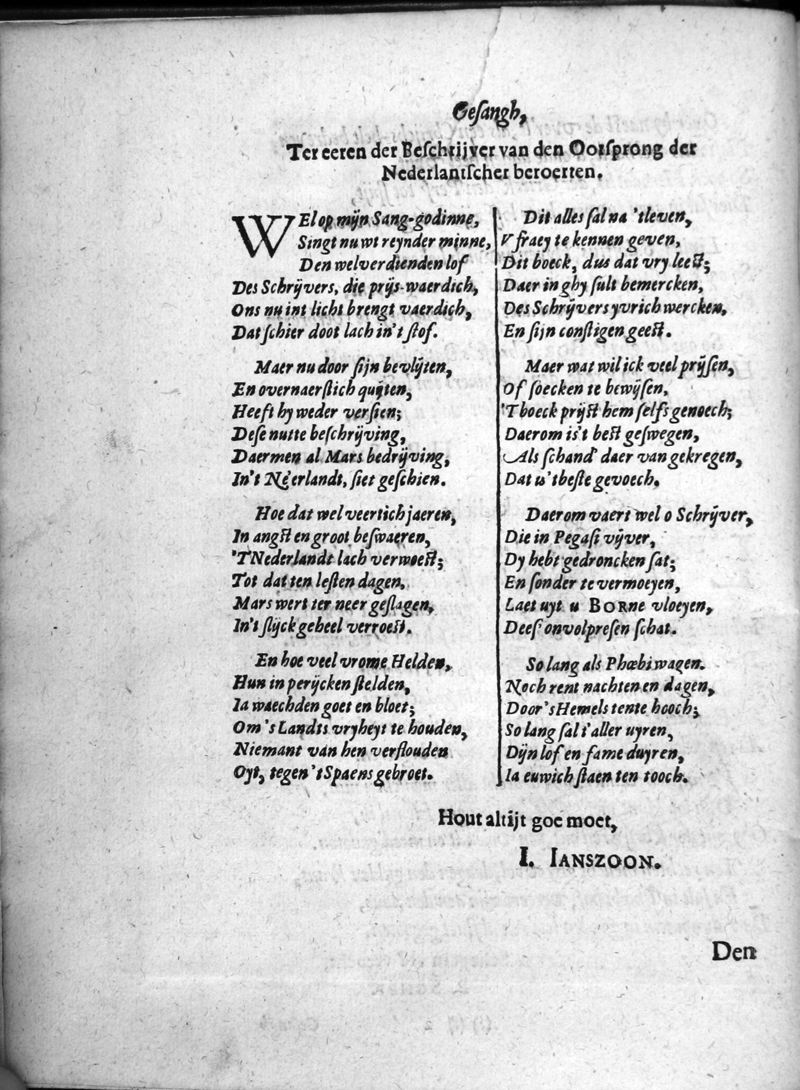 Gesangh,
Ter eeren der Beschrijver van den Oorsprong der
Nederlantscher beroerten.
WEl op mijn Sang-godinne,
Singt nu wt reynder minne,
Den welverdienden lof
Des Schrijvers, die prijs-waerdich,
Ons nu int licht brengt vaerdich,
Dat schier doot lach in't stof.
Maer nu door sijn bevlijten,
En overnaerstich quijten,
Heeft hy weder versien;
Dese nutte beschrijving,
Daermen al Mars bedrijving,
In't Neerlandt, siet geschien.
Hoe dat wel veertich jaeren,
In angst en groot beswaeren,
'TNederlandt lach verwoest;
Tot dat ten lesten dagen,
Mars wert ter neer geslagen,
In't slijck geheel verroest.
En hoe veel vrome Helden,
Hun in perijcken stelden,
Ia waechden goet en bloet;
Om 's Landts vryheyt te houden,
Niemant van hen verflouden
Oyt, tegen 't Spaens gebroet.
Dit alles sal na 'tleven,
V fraey te kennen geven,
Dit boeck, dus dat vry leest;
Daer in ghy sult bemercken,
Des Schrijvers yvrich wercken,
En sijn constigen geest.
Maer wat wil ick veel prijsen,
Of soecken te bewijsen,
'Tboeck prijst hem selfs genoech;
Daerom is't best geswegen,
Als schand' daer van gekregen,
Dat is 'tbeste gevoech.
Daerom vaert wel o Schrijver,
Die in Pegasi vijver,
Dy hebt gedroncken sat;
En sonder te vermoeyen,
Laet uyt u BORne vloeyen,
Dees' onvolpresen schat.
So lang als Phœbi wagen.
Noch rent nachten en dagen,
Door 's Hemels tente hooch;
So lang sal t'aller uyren,
Dijn lof en fame duyren,
Ia euwich staen ten tooch.
Hout altijt goe moet,
I. IANSZOON.
Den